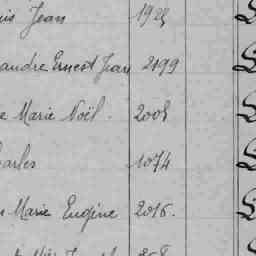 uis Jean 1925
andre Ernest Jean 2199
e Marie Noël. 2005
harles 1074
n Marie Eugène 2016.